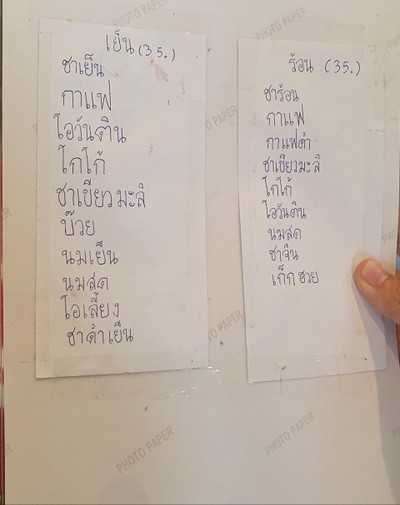 เย็น (35.)
ชาเย็น
กาแฟ
โอวันติน
โกโก้
ชาเขียวมะลิ
บ๊วย
นมเย็น
นมสด
โอเลี้ยง
ชาดำเย็น
ร้อน (35.)
ชาร้อน
กาแฟ
กาแฟดำ
ชาเขียวมะลิ
โกโก้
โอวันติน
นมสด
ชาจีน
เก็กฮวย
PHOTO PAPER
PHOTO PAPER
PHOTO PAPER
PHOTO PAPER
PHOTO PAPER